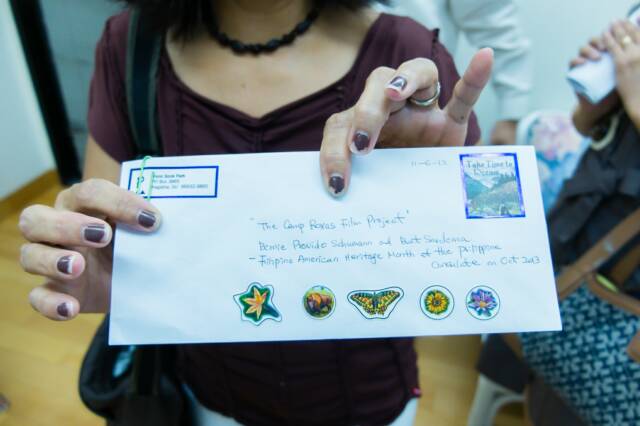 PO Box 3905
11-6-13
Take Time to
Dream
"The Camp Roxas Film Project"
Bernie Provido Schumann and Burt Sardoma
- Filipino American Heritage Month at the Philippine
Consulate on Oct 2013